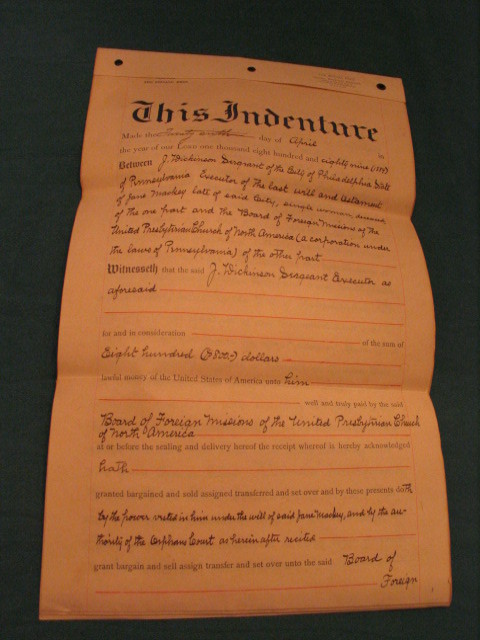 This Indenture
Made the Twenty sixth day of April in
the year of our Lord one thousand eight hundred and eighty nine (1889)
Between J. Dickinson Sergeant of the City of Philadelphia State
of Pennsylvania Executor of the last will and testament
of Jane Mackey late of said City, single woman, deceased
of the one part and the Board of Foreign Missions of the
United Presbyterian Church of North America (a corporation under
the laws of Pennsylvania) of the other part
Witnesseth that the said J. Dickinson Sergeant Executor as
aforesaid
for and in consideration of the sum of
Eight hundred ($800.-) dollars
lawful money of the United States of America unto him
well and truly paid by the said
Board of Foreign Missions of the United Presbyterian Church
of North America
at or before the sealing and delivery hereof the receipt whereof is hereby acknowledged
hath
granted bargained and sold assigned transferred and set over and by these presents doth
by the power vested in him under the will of said Jane Mackey, and by the au-
thority of the Orphans Court as herein after recited
grant bargain and sell assign transfer and set over unto the said Board of
Foreign